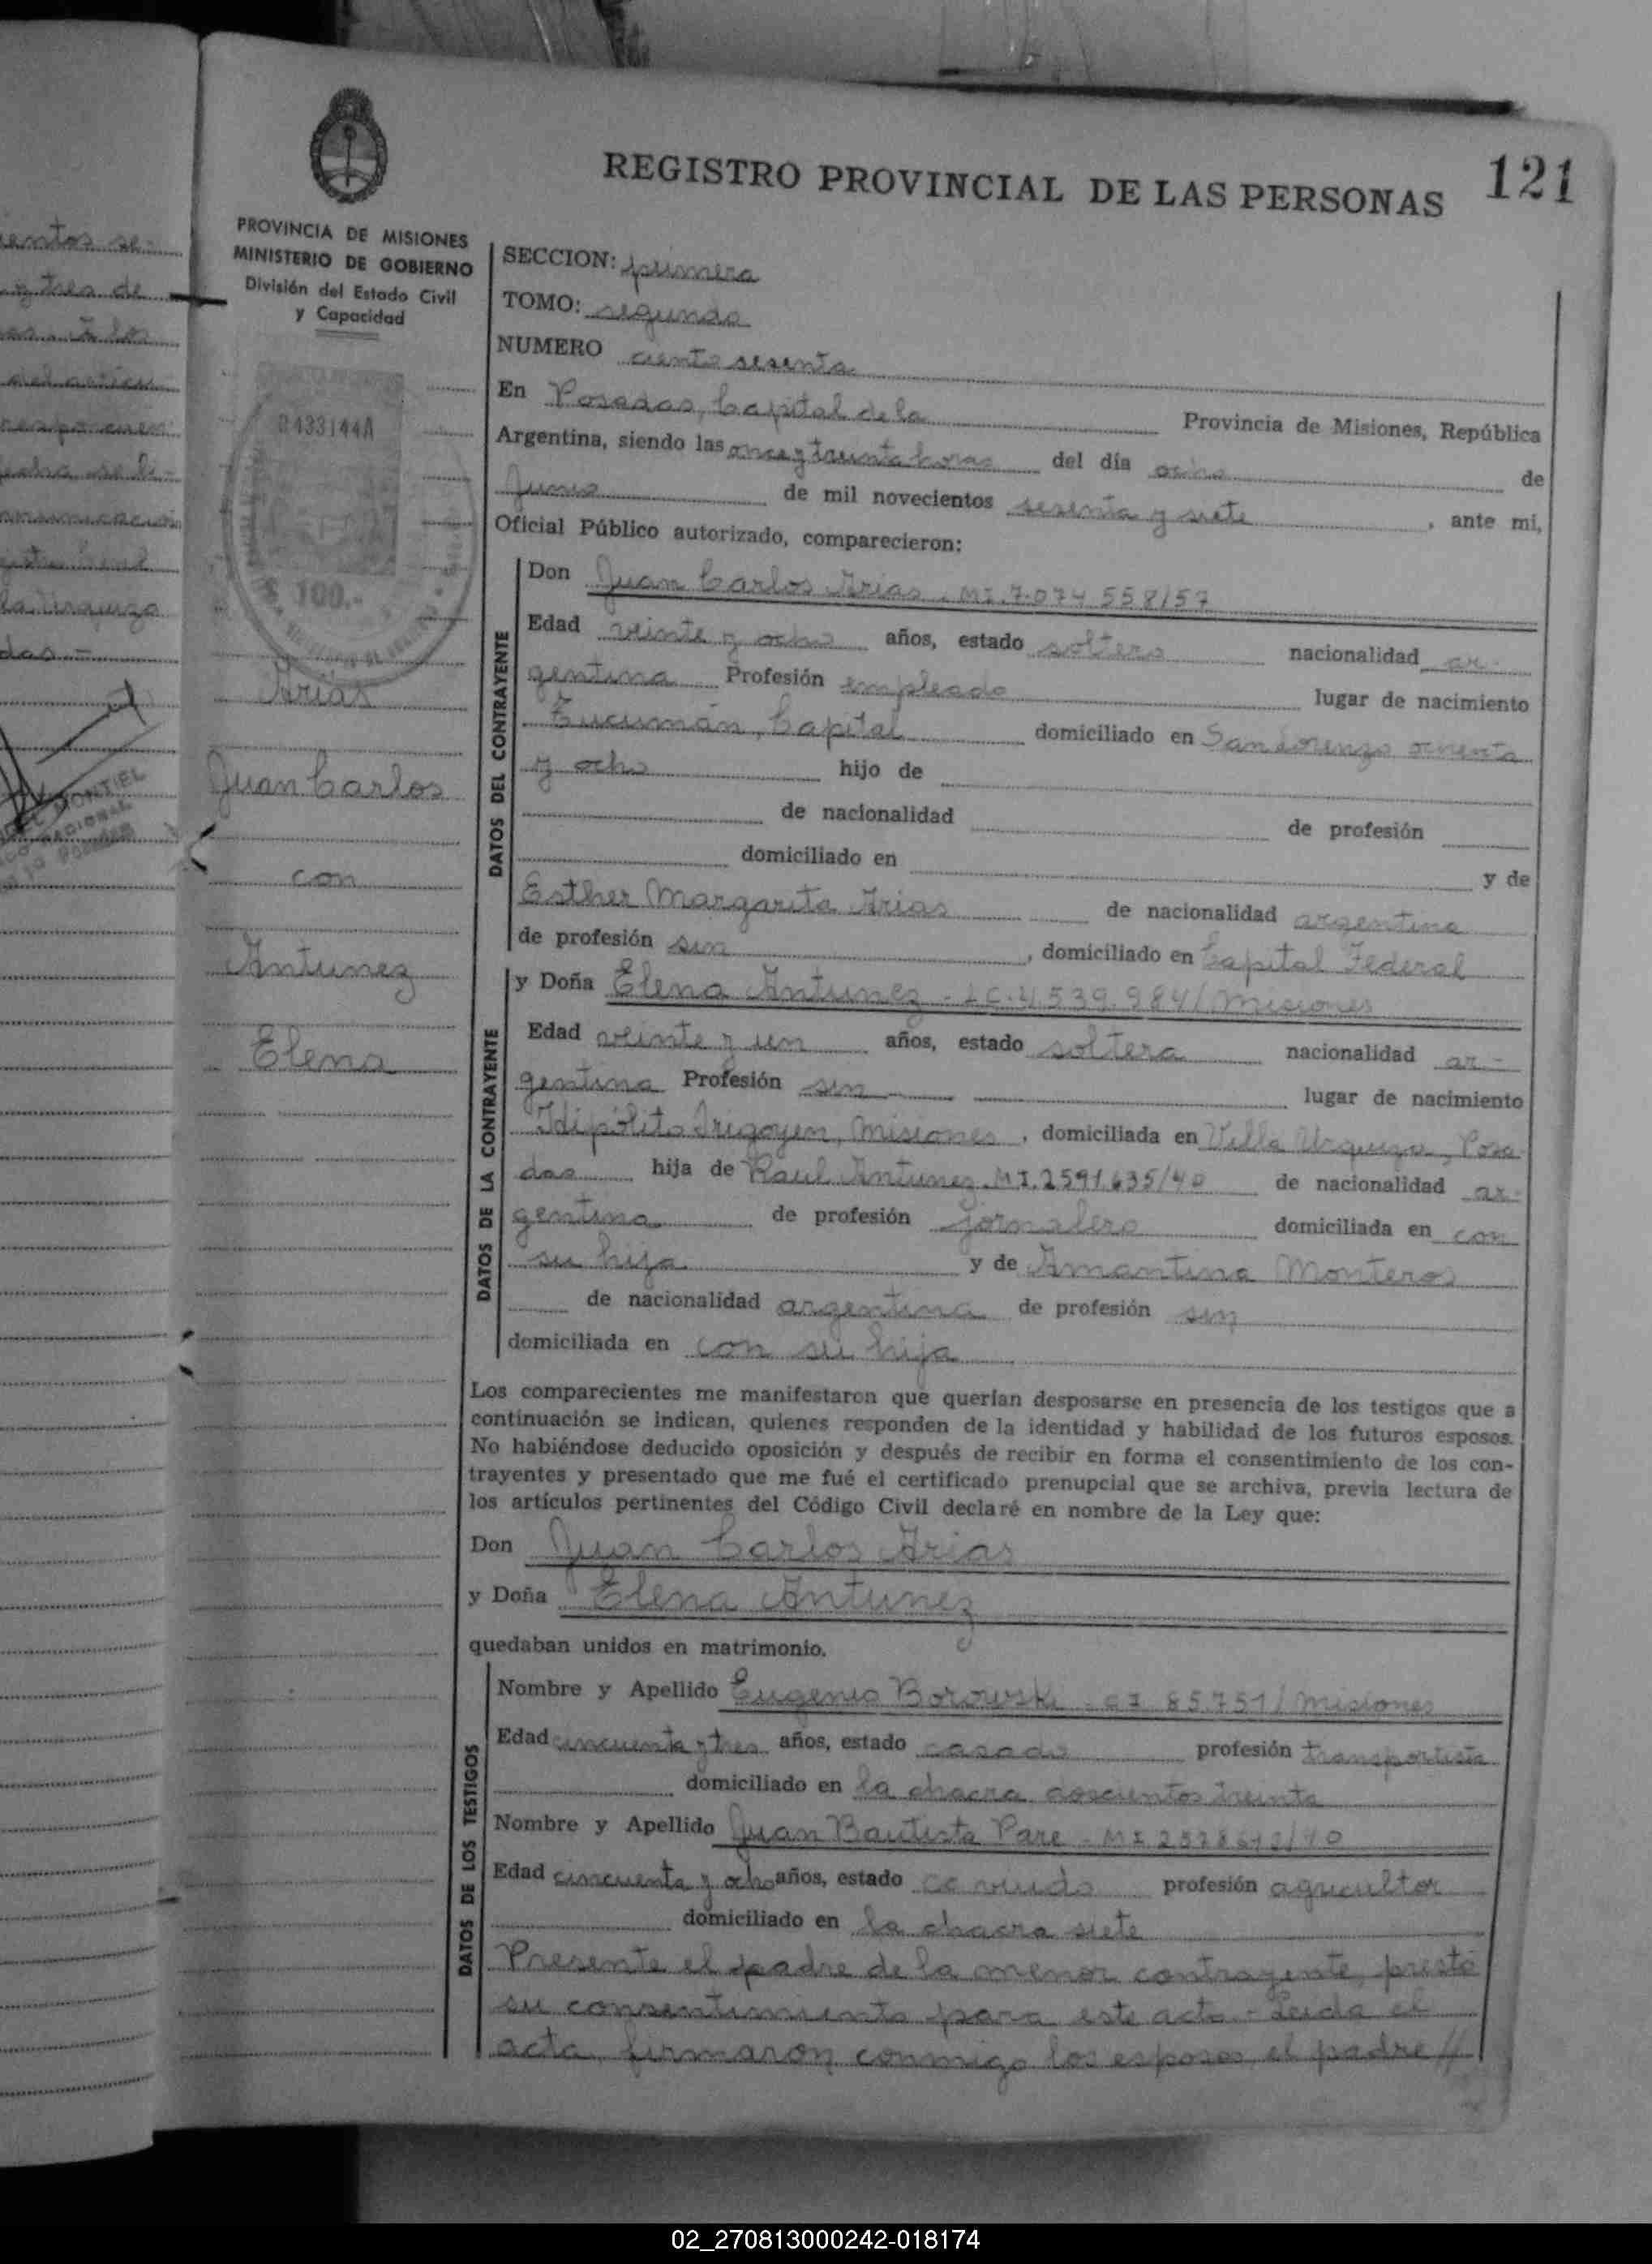 REGISTRO PROVINCIAL DE LAS PERSONAS 121
PROVINCIA DE MISIONES
MINISTERIO DE GOBIERNO
División del Estado Civil
y Capacidad
0433144A
$ 100.-
Arias
Juan Carlos
con
Antunez
Elena
SECCION: primera
TOMO: segundo
NUMERO ciento sesenta
En Posadas, Capital de la Provincia de Misiones, República
Argentina, siendo las once y treinta horas del día ocho de
Junio de mil novecientos sesenta y siete, ante mi,
Oficial Público autorizado, comparecieron:
DATOS DEL CONTRAYENTE
Don Juan Carlos Arias. MI. 7.074.558/57
Edad veinte y ocho años, estado soltero nacionalidad ar-
gentina Profesión empleado lugar de nacimiento
Tucumán, Capital domiciliado en San Lorenzo
y ocho hijo de
de nacionalidad de profesión
domiciliado en y de
Esther Margarita Arias de nacionalidad argentina
de profesión sin, domiciliado en Capital Federal
DATOS DE LA CONTRAYENTE
y Doña Elena Antunez - LC. 4.539.984/Misiones
Edad veinte y un años, estado soltera nacionalidad ar-
gentina Profesión sin lugar de nacimiento
Hipólito Irigoyen, Misiones, domiciliada en Villa Urquiza, Posa-
das hija de Raul Antunez. MI. 2591.635/40 de nacionalidad ar-
gentina de profesión jornalero domiciliada en con
su hija y de Amantina Monteros
de nacionalidad argentina de profesión sin
domiciliada en con su hija
Los comparecientes me manifestaron que querían desposarse en presencia de los testigos que a
continuación se indican, quienes responden de la identidad y habilidad de los futuros esposos.
No habiéndose deducido oposición y después de recibir en forma el consentimiento de los con-
trayentes y presentado que me fué el certificado prenupcial que se archiva, previa lectura de
los artículos pertinentes del Código Civil declaré en nombre de la Ley que:
Don Juan Carlos Arias
y Doña Elena Antunez
quedaban unidos en matrimonio.
DATOS DE LOS TESTIGOS
Nombre y Apellido Eugenio Borowski - CI 85.751/Misiones
Edad cincuenta y tres años, estado casado profesión transportista
domiciliado en la chacra doscientos treinta
Nombre y Apellido Juan Bautista Pare - MI
Edad cincuenta y ocho años, estado ca viudo profesión agricultor
domiciliado en la chacra siete
Presente el padre de la menor contrayente, prestó
su consentimiento para este acto - Leida el
acta, firmaron conmigo los esposos, el padre //
02_270813000242-018174